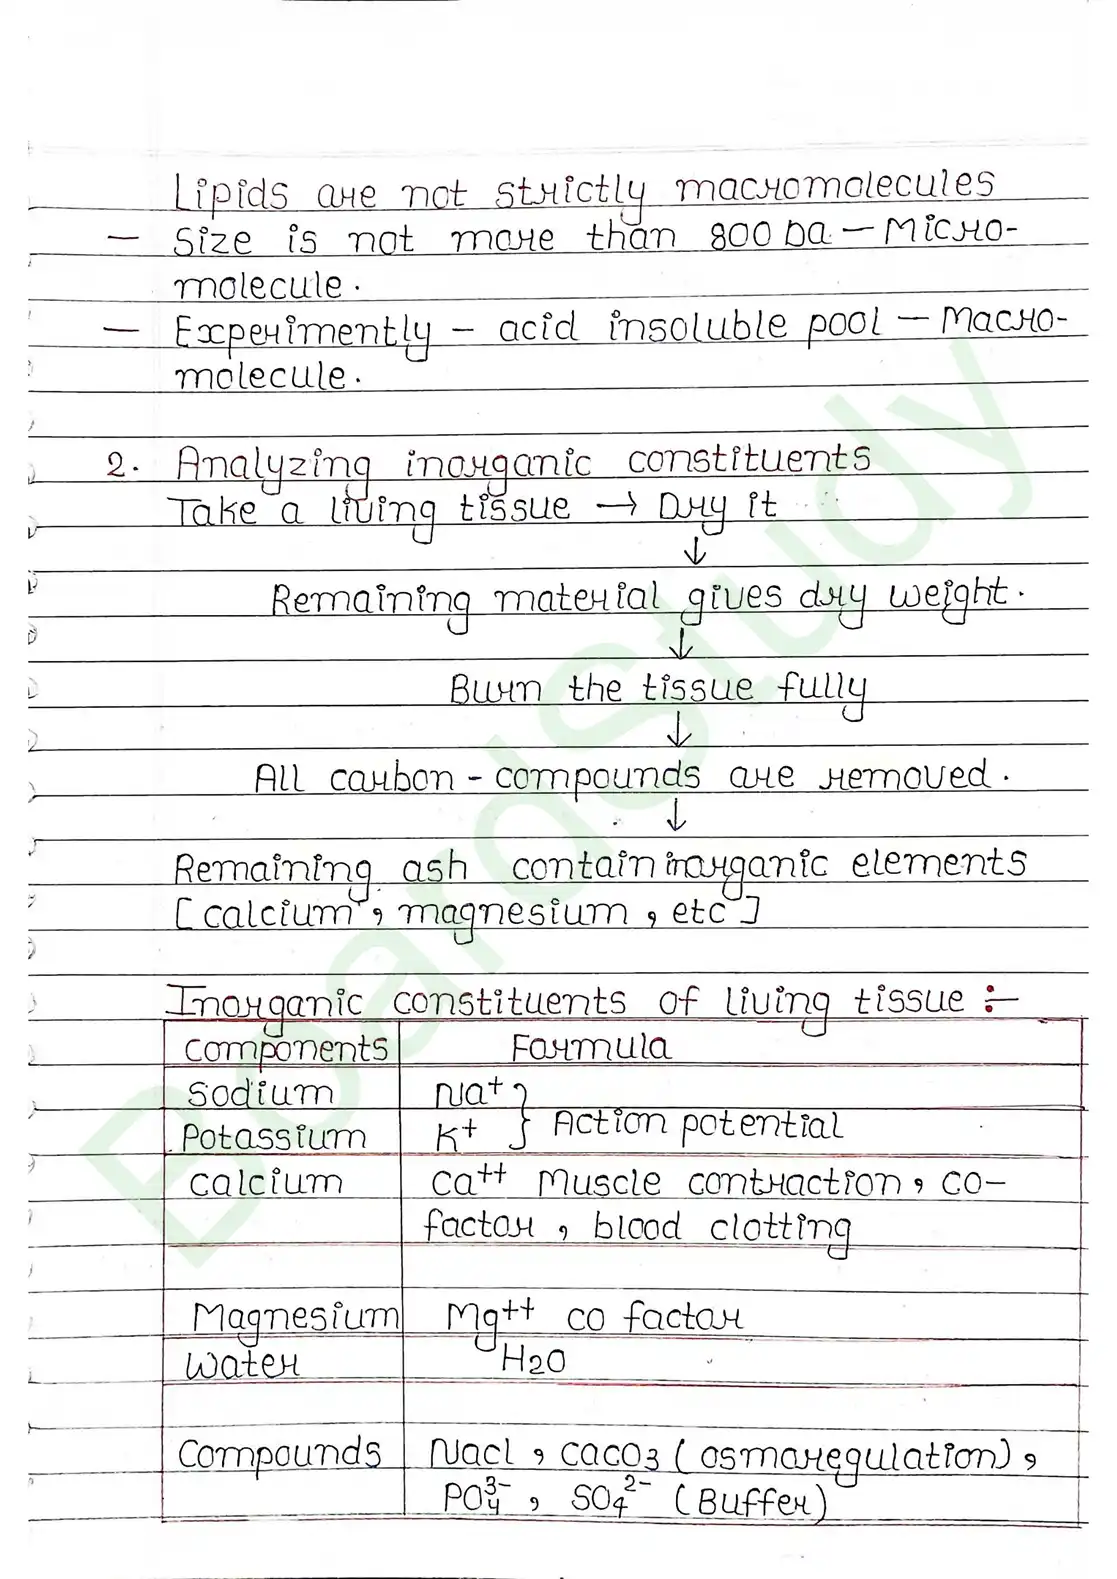 Lipids are not strictly macromolecules
— Size is not more than 800 Da — Micro-
molecule.
— Experimently – acid insoluble pool — Macro-
molecule.
2. Analyzing inorganic constituents
Take a living tissue → Dry it
↓
Remaining material gives dry weight.
↓
Burn the tissue fully
↓
All carbon - compounds are removed.
↓
Remaining ash contain inorganic elements
[calcium, magnesium, etc]
Inorganic constituents of living tissue :-
Components Formula
Sodium Na⁺
Potassium K⁺ } Action potential
Calcium Ca⁺⁺ Muscle contraction, co-
factor, blood clotting
Magnesium Mg⁺⁺ co factor
Water H2O
Compounds Nacl, CaCO3 (osmoregulation),
PO₄³⁻, SO₄²⁻ (Buffer)
BoardStudy